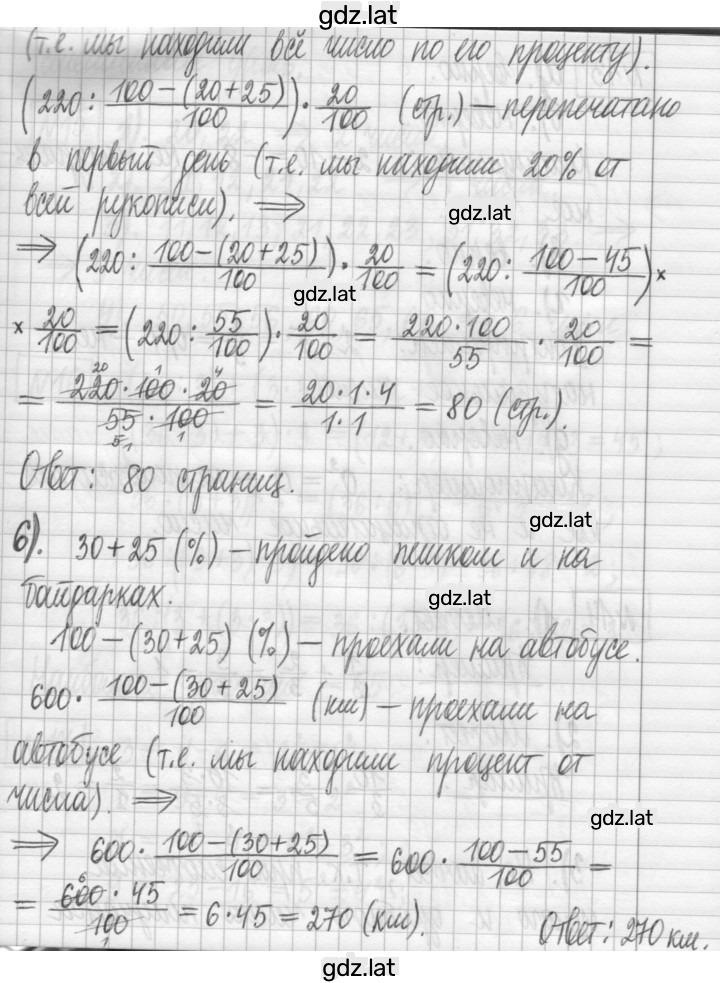 gdz.lat
(т.е. мы находим всё число по его проценту).
(220 : (100 − (20 + 25))/100) · 20/100 (стр.) – перепечатано
в первый день (т.е. мы находим 20% от
всей рукописи), ⟹
gdz.lat
⟹ (220 : (100 − (20 + 25))/100) · 20/100 = (220 : (100 − 45)/100) ×
gdz.lat
× 20/100 = (220 : 55/100) · 20/100 = (220 · 100)/55 · 20/100 =
= (220 · 100 · 20)/(55 · 100) = (20 · 1 · 4)/(1 · 1) = 80 (стр.).
Ответ: 80 страниц.
gdz.lat
б). 30 + 25 (%) – пройдено пешком и на
байдарках.
gdz.lat
100 – (30 + 25) (%) – проехали на автобусе.
600 · (100 − (30 + 25))/100 (км) – проехали на
автобусе (т.е. мы находим процент от
числа). ⟹
gdz.lat
⟹ 600 · (100 − (30 + 25))/100 = 600 · (100 − 55)/100 =
= (600 · 45)/100 = 6 · 45 = 270 (км).
Ответ: 270 км.
gdz.lat